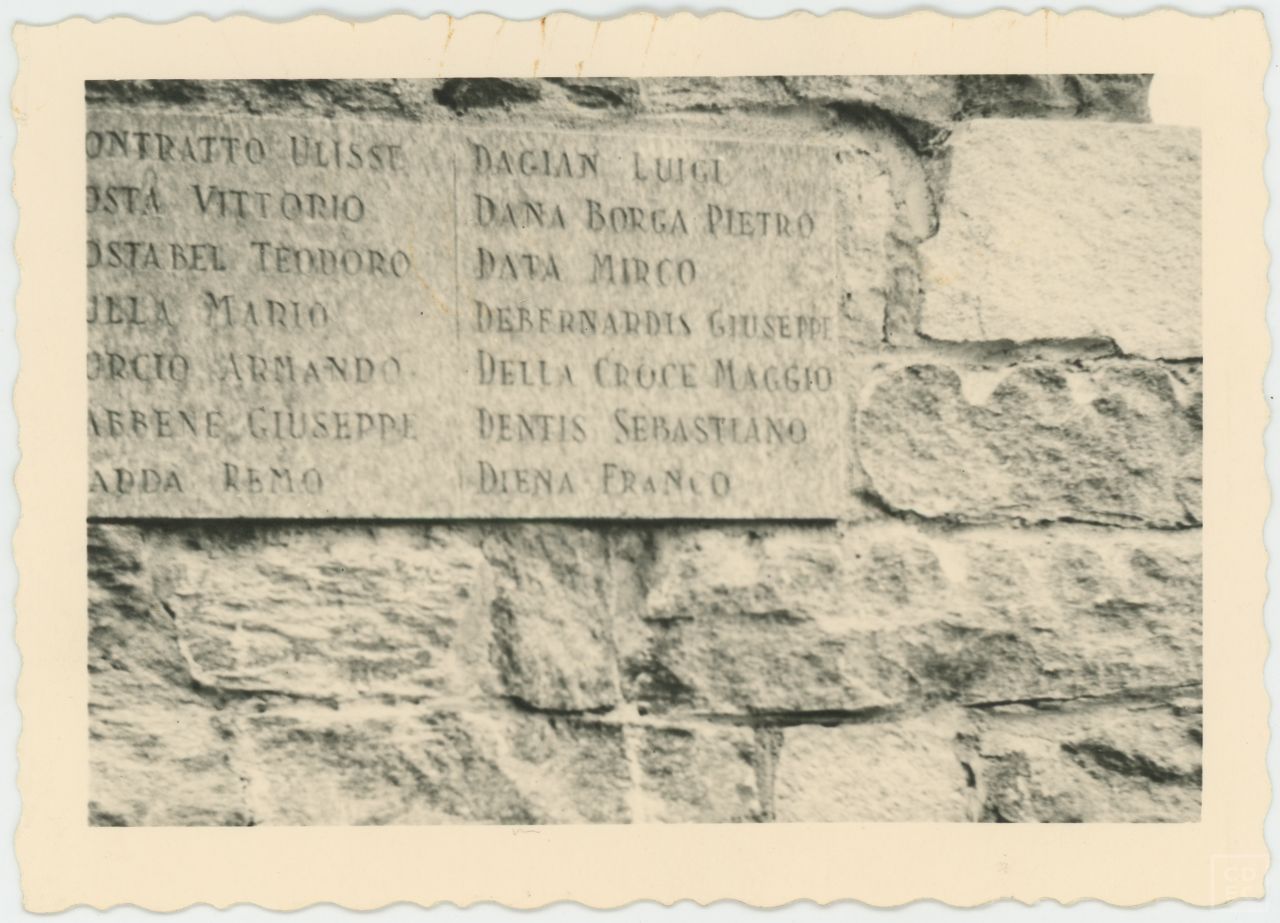 ONTRATTO ULISSE
OSTA VITTORIO
OSTABEL TEODORO
ULLA MARIO
ORCIO ARMANDO
ABBENE GIUSEPPE
ADDA REMO
DAGIAN LUIGI
DANA BORGA PIETRO
DATA MIRCO
DEBERNARDIS GIUSEPPE
DELLA CROCE MAGGIO
DENTIS SEBASTIANO
DIENA FRANCO
CD
EC